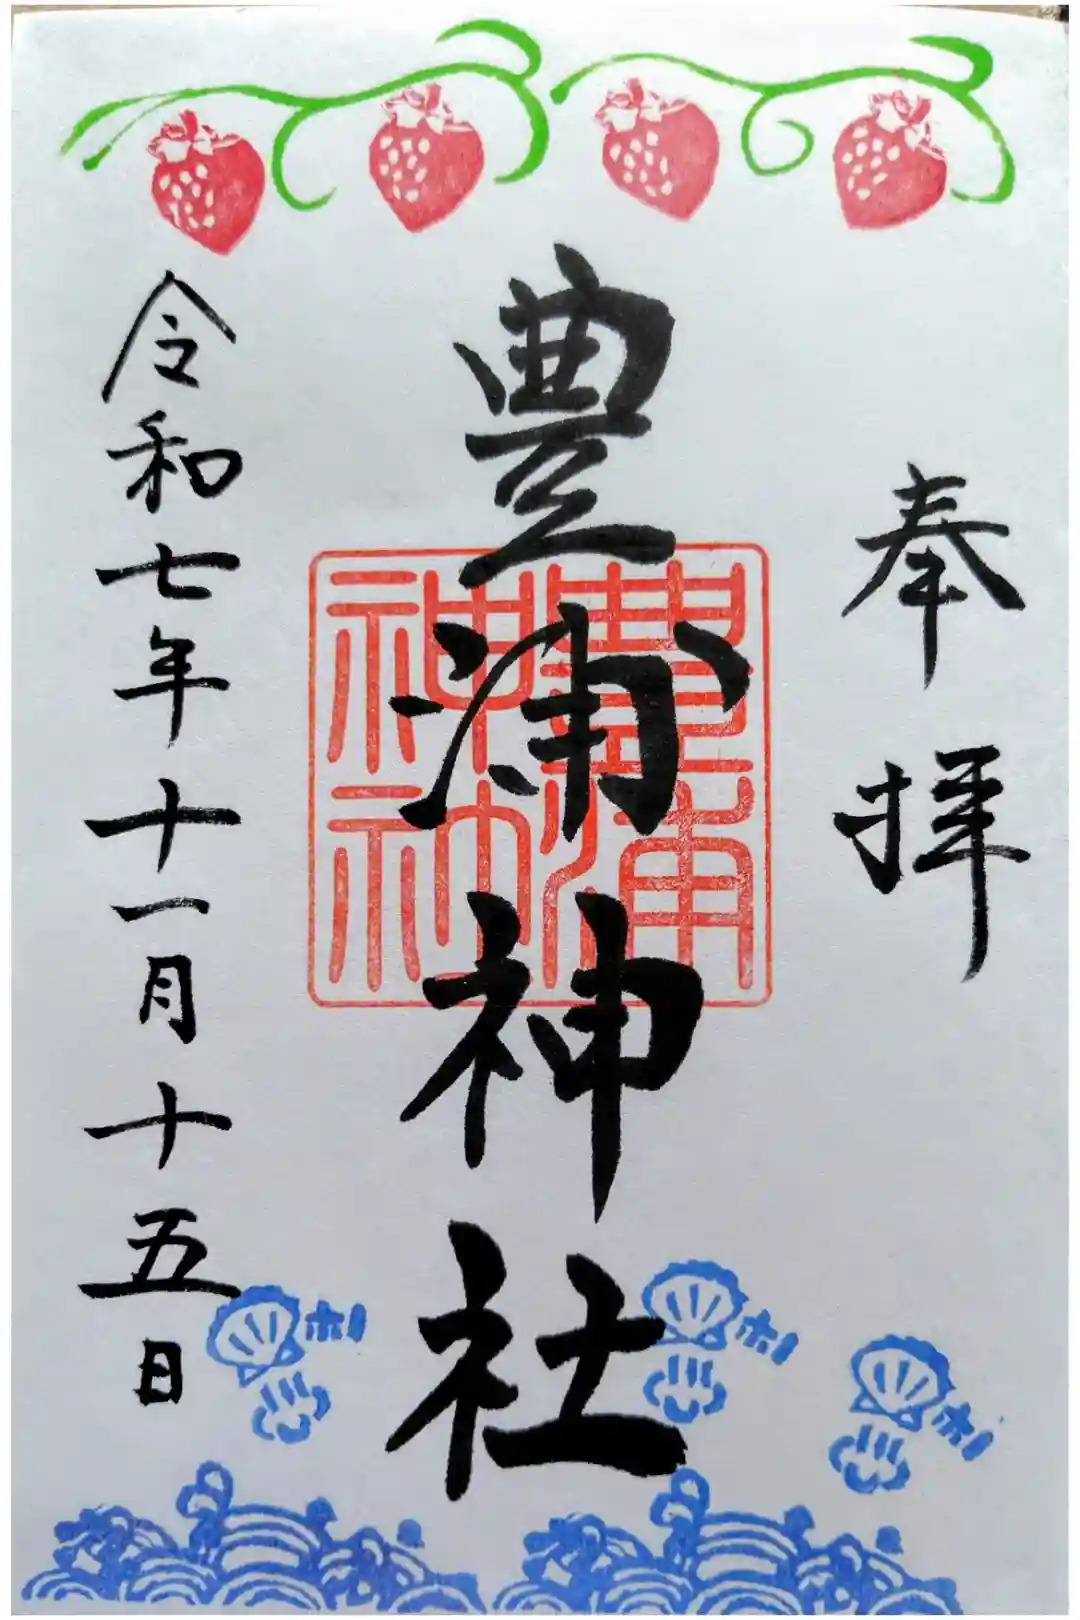 奉拝
豊浦神社
豊浦
神社
令和七年十一月十五日
ホー
ホー
ホー